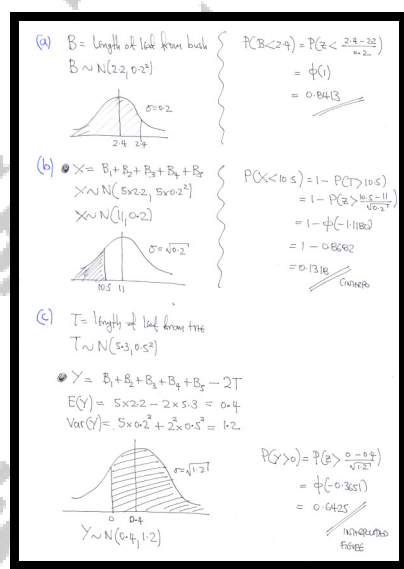 (a) B = length of leaf from bush
B ~ N(2.2, 0.2²)
σ=0.2
2.4 2.4
P(B<2.4) = P(Z < 2.4-2.2/0.2)
= ϕ(1)
= 0.8413
(b) X = B₁+B₂+B₃+B₄+B₅
X~N(5x2.2, 5x0.2²)
X~N(11, 0.2)
σ=√0.2
10.5 11
P(X<10.5) = 1 - P(T>10.5)
= 1 - P(Z > 10.5-11/√0.2)
= 1 - ϕ(-1.1180)
= 1 - 0.8682
= 0.1318
(c) T = length of leaf from tree
T~N(5.3, 0.5²)
Y = B₁+B₂+B₃+B₄+B₅ - 2T
E(Y) = 5x2.2 - 2x5.3 = 0.4
Var(Y) = 5x0.2² + 2²x0.5² = 1.2
σ=√1.2
0 0.4
Y~N(0.4, 1.2)
P(Y>0) = P(Z > 0-0.4/√1.2)
= ϕ(-0.3651)
= 0.6425
INTERPOLATED
FIGURE